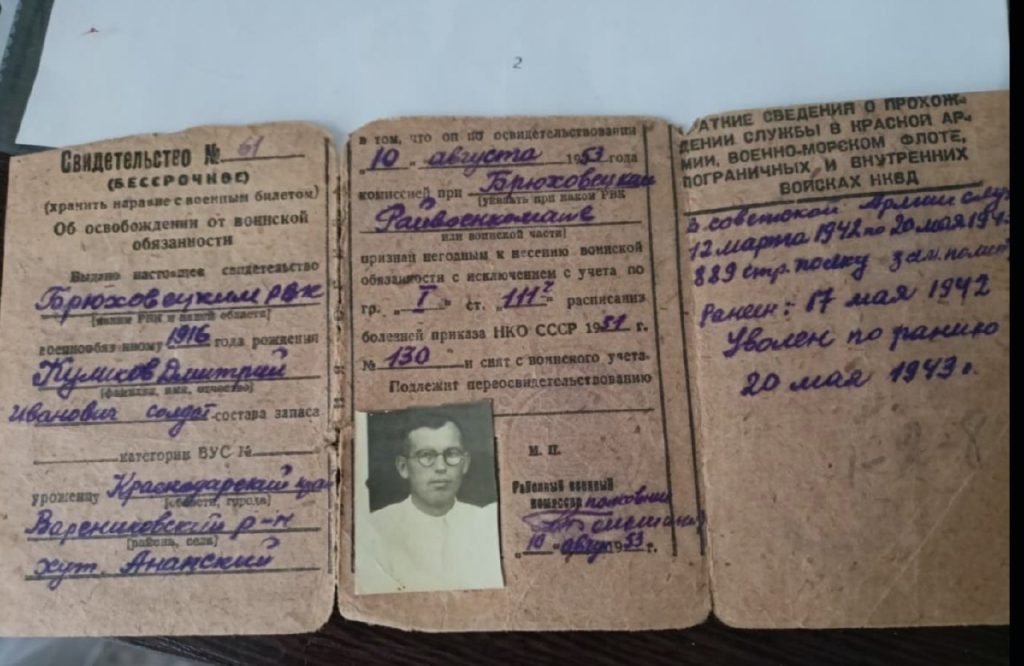 2
Свидетельство № 61
(БЕССРОЧНОЕ)
(хранить наравне с военным билетом)
Об освобождении от воинской
обязанности
Выдано настоящее свидетельство
Брюховецким РВК
(каким РВК и какой области)
военнообязанному 1916 года рождения
Куликов Дмитрий
(фамилия, имя, отчество)
Иванович солдат состава запаса
категории ВУС №
уроженцу Краснодарский край
(области, города)
Варениковский р-н
(района, села)
хут. Анапский
в том, что он по освидетельствовании
"10" августа 1953 года
комиссией при Брюховецким
(указать при каком РВК
Райвоенкомате
или воинской части)
признан негодным к несению воинской
обязанности с исключением с учета по
гр. "I" ст. "111г" расписания
болезней приказа НКО СССР 1951 г.
№ 130 и снят с воинского учета.
Подлежит переосвидетельствованию
М. П.
Районный военный
комиссар полковник
"10" август 1953 г.
АТКИЕ СВЕДЕНИЯ О ПРОХОЖ-
ДЕНИИ СЛУЖБЫ В КРАСНОЙ АР-
МИИ, ВОЕННО-МОРСКОМ ФЛОТЕ,
ПОГРАНИЧНЫХ И ВНУТРЕННИХ
ВОЙСКАХ НКВД
В советской Армии слу
12 марта 1942 по 20 мая 194
889 стр. полку зам. полит
Ранен: 17 мая 1942
Уволен по ранию
20 мая 1943 г.